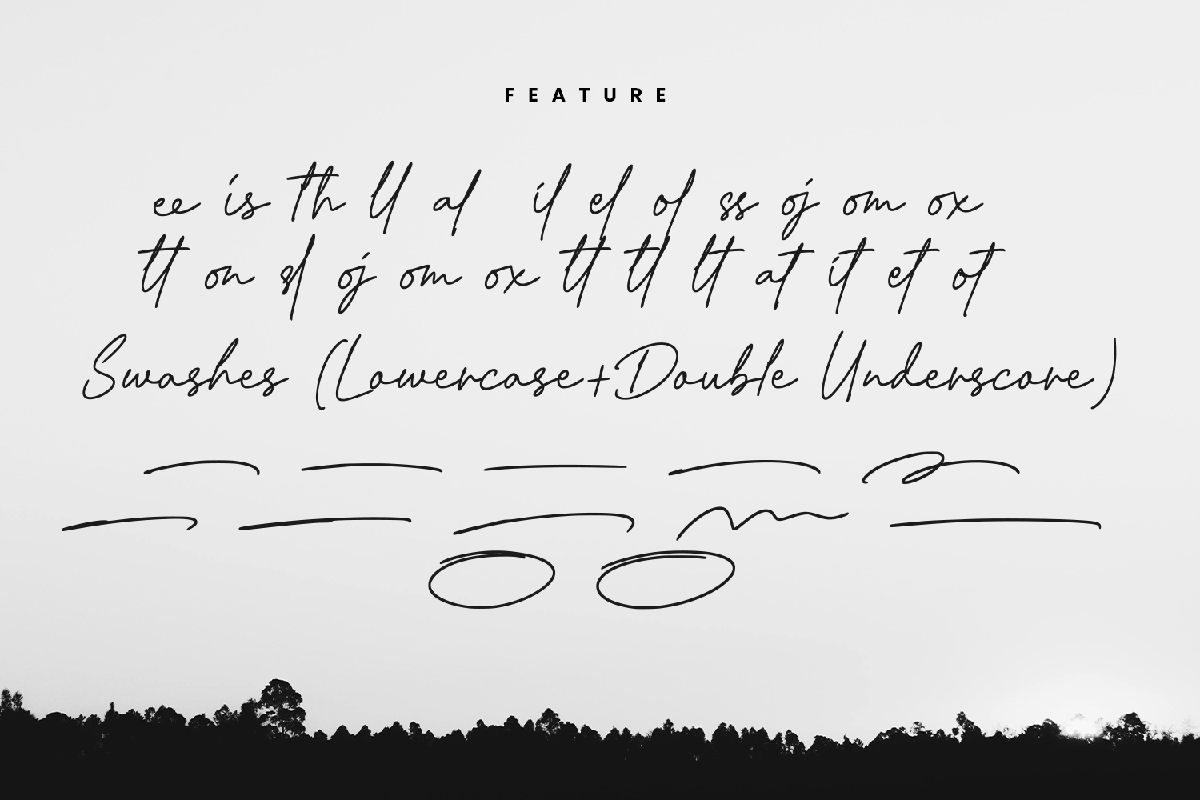 FEATURE
ee is th ll al il el ol ss oj om ox
tt on sl oj om ox tt tl lt at it et ot
Swashes (Lowercase+Double Underscore)